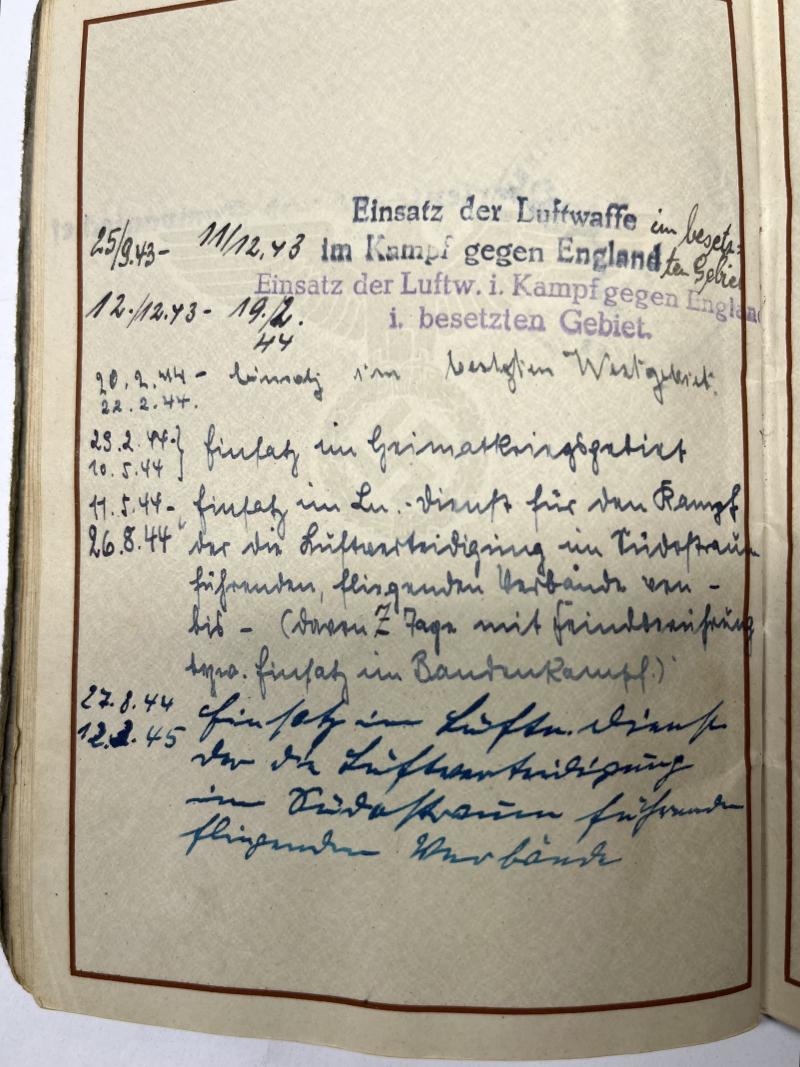 25/9.43- 11/12.43 Einsatz der Luftwaffe im besetz-
im Kampf gegen England ten Gebiet
12./12.43- 19./2. 44 Einsatz der Luftw. i. Kampf gegen England
i. besetzten Gebiet.
20.2.44- Einsatz im besetzten Westgebiet.
22.2.44.
23.2.44- Einsatz im Heimatkriegsgebiet
10.5.44
11.5.44- Einsatz im Ln.-Dienst für den Kampf
26.8.44 der die Luftverteidigung im Südostraum
führenden, fliegenden Verbände von -
bis - (davon 7 Tage mit Feindberührung
bzw. Einsatz im Bandenkampf.)
27.8.44 Einsatz im Luftn. Dienst
12.2.45 der die Luftverteidigung
im Südostraum führenden
fliegenden Verbände